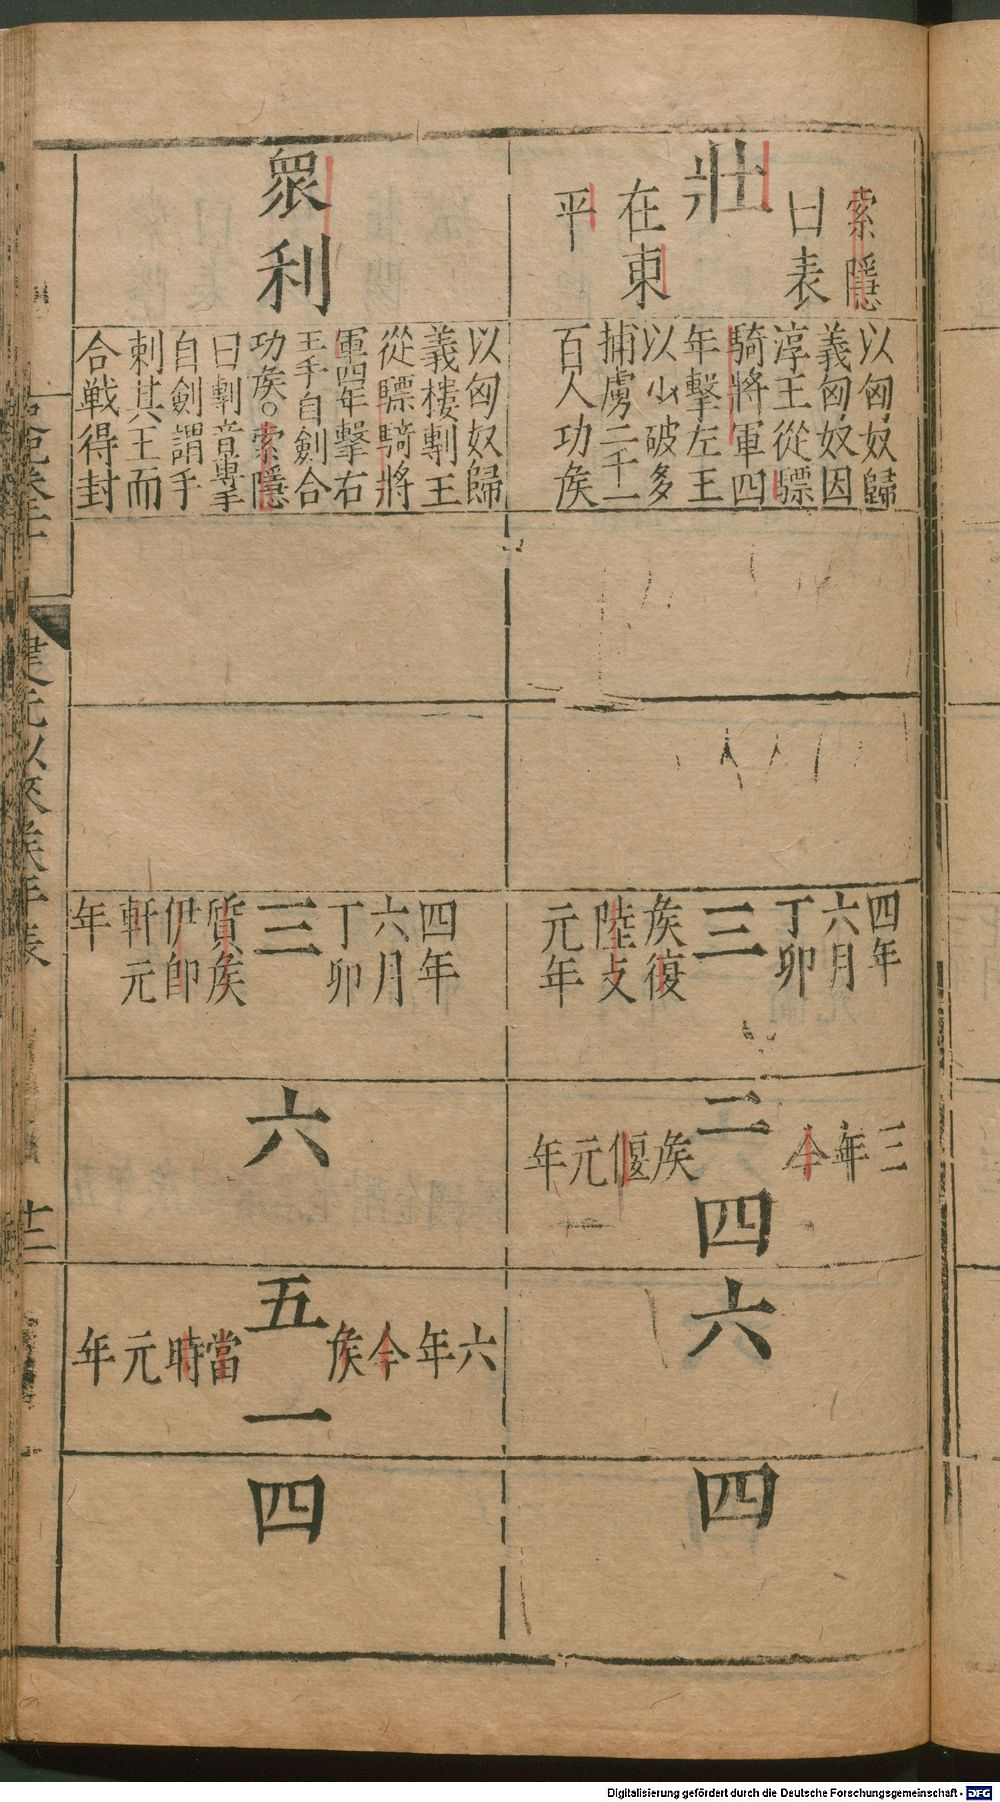 索隱
曰表
壯
在東
平
以匈奴歸
義匈奴因
淳王從驃
騎將軍四
年擊左王
以少破多
捕虜二千一
百人功矦
四年
六月
丁卯
三
矦復
陸支
元年
三年今
二
矦偃元年
四
六
四
眾利
以匈奴歸
義樓剸王
從驃騎將
軍四年擊右
王手自劍合
功矦。索隱
曰剸音專手
自劍謂手
刺其王而
合戦得封
四年
六月
丁卯
三
質矦
伊即
軒元
年
六
六年今矦
五
當時元年
一
四
建元以來矦年表
十二
Digitalisierung gefördert durch die Deutsche Forschungsgemeinschaft - DFG